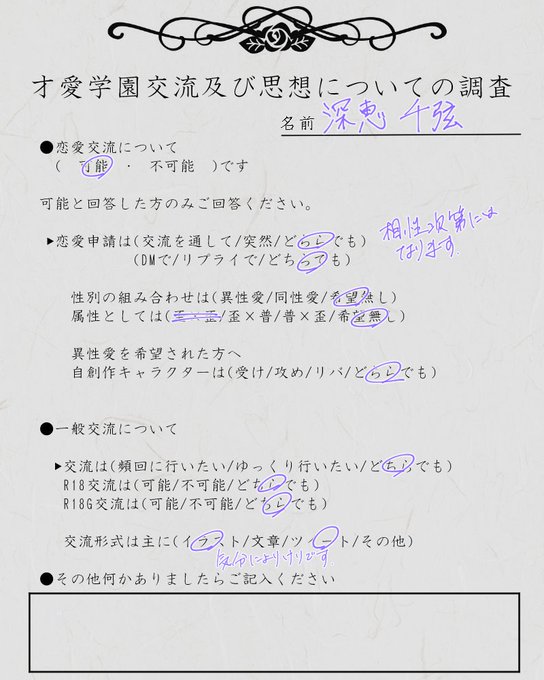 才愛学園交流及び思想についての調査
名前 深恵 千弦
●恋愛交流について
( 可能 ・ 不可能 )です
可能と回答した方のみご回答ください。
▶恋愛申請は(交流を通して/突然/どちらでも)
(DMで/リプライで/どちっても)
相性次第には
なります。
性別の組み合わせは(異性愛/同性愛/希望無し)
属性としては(歪×歪/歪×普/普×歪/希望無し)
異性愛を希望された方へ
自創作キャラクターは(受け/攻め/リバ/どちらでも)
●一般交流について
▶交流は(頻回に行いたい/ゆっくり行いたい/どちらでも)
R18交流は(可能/不可能/どちらでも)
R18G交流は(可能/不可能/どちらでも)
交流形式は主に(イラスト/文章/ツート/その他)
気分によりけりです。
●その他何かありましたらご記入ください